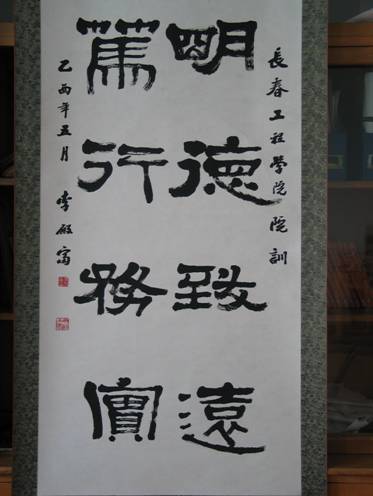 長春工程學院院訓
明德致遠
篤行務實
乙酉年五月 李